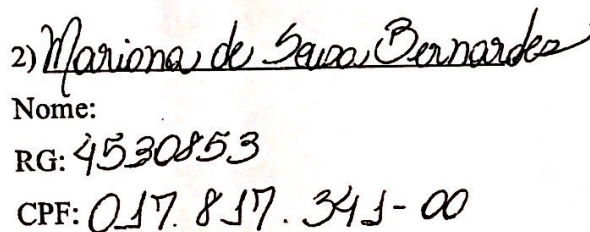 2) Mariana de Sousa Bernardes
Nome:
RG: 4530853
CPF: 017.817.341-00